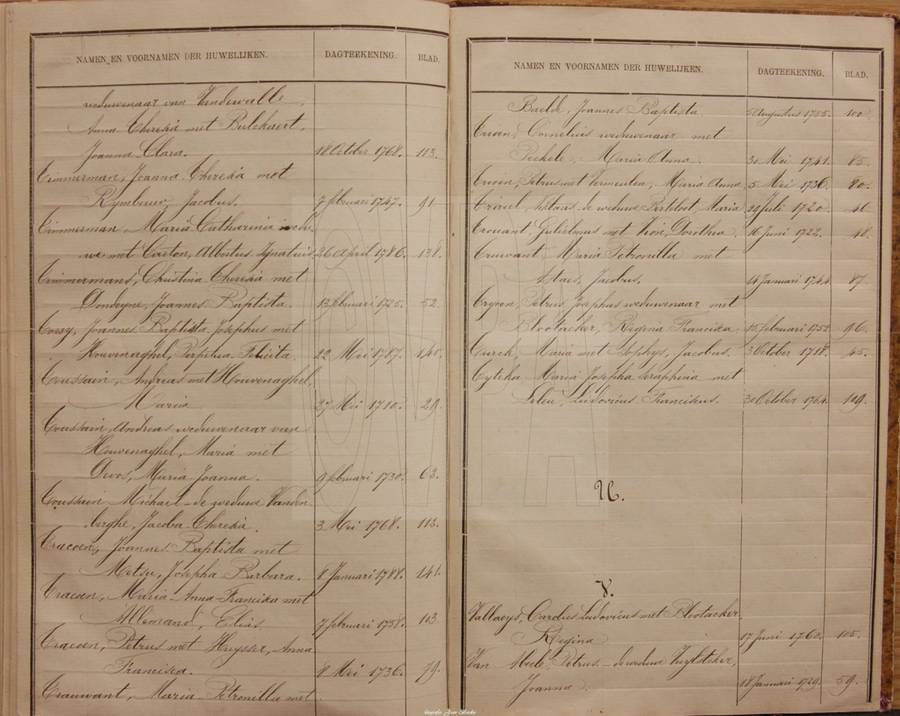 NAMEN EN VOORNAMEN DER HUWELIJKEN. DAGTEEKENING. BLAD.
weduwenaar van Vandewalle
Anna Theresia met Bulckaert,
Joanna Clara. 18 October 1768. 113.
Timmerman, Joanna Theresia met
Jacobus. 7 februari 1747. 91
Timmerman Maria Catharina
met Carton, Albertus Ignatius 26 april 1786. 138.
Timmermans, Christina Theresia met
Dondeyne, Joannes Baptista. 13 februari 1725. 52
Joannes Baptista Josephus met
Houvenaghel, Perpetua Felicita. 22 Mei 1787. 140.
Toussain, Andreas met Houvenaghel,
Maria 27 Mei 1710. 29.
Toussain Andreas weduwenaar van
Houvenaghel, Maria met
Maria Joanna. 9 februari 1730. 63.
Toussain Michael de weduwe Vanden
berghe, Jacoba Theresia. 3 Mei 1768. 113.
Tracoen, Joannes Baptista met
Metsu, Josepha Barbara. 8 Januari 1788. 141.
Tracoen, Maria Anna Francisca met
7 februari 1758. 103
Tracoen, Petrus met Huysser, Anna
Francisca. 8 Mei 1736. 79.
Trauwant, Maria Petronella met
NAMEN EN VOORNAMEN DER HUWELIJKEN. DAGTEEKENING. BLAD.
Joannes Baptista 5 Augustus 1755. 100.
Cornelius weduwenaar met
Maria Anna. 30 Mei 1741. 85.
Petrus met Vermeulen, Maria Anna 5 Mei 1736. 80.
de weduwe Maria 22 Juli 1720. 46
Trouant, Gulielmus met Dorothea 16 Juni 1722. 48.
Truwant Maria Petronilla met
Staes, Jacobus. 14 Januari 1744. 87
Petrus Josephus weduwenaar met
Blootacker, Regina Francisca 15 februari 1752 96.
Turck, Maria met Jacobus. 3 October 1718. 45.
Maria Josepha Seraphina met
Leleu, Ludovicus Franciscus. 30 October 1764. 109.
U.
V.
Vallaeys, Carolus Ludovicus met Blootacker,
Regina 17 Juni 1760. 105.
Van Petrus de weduwe
Joanna. 18 Januari 1729. 59.